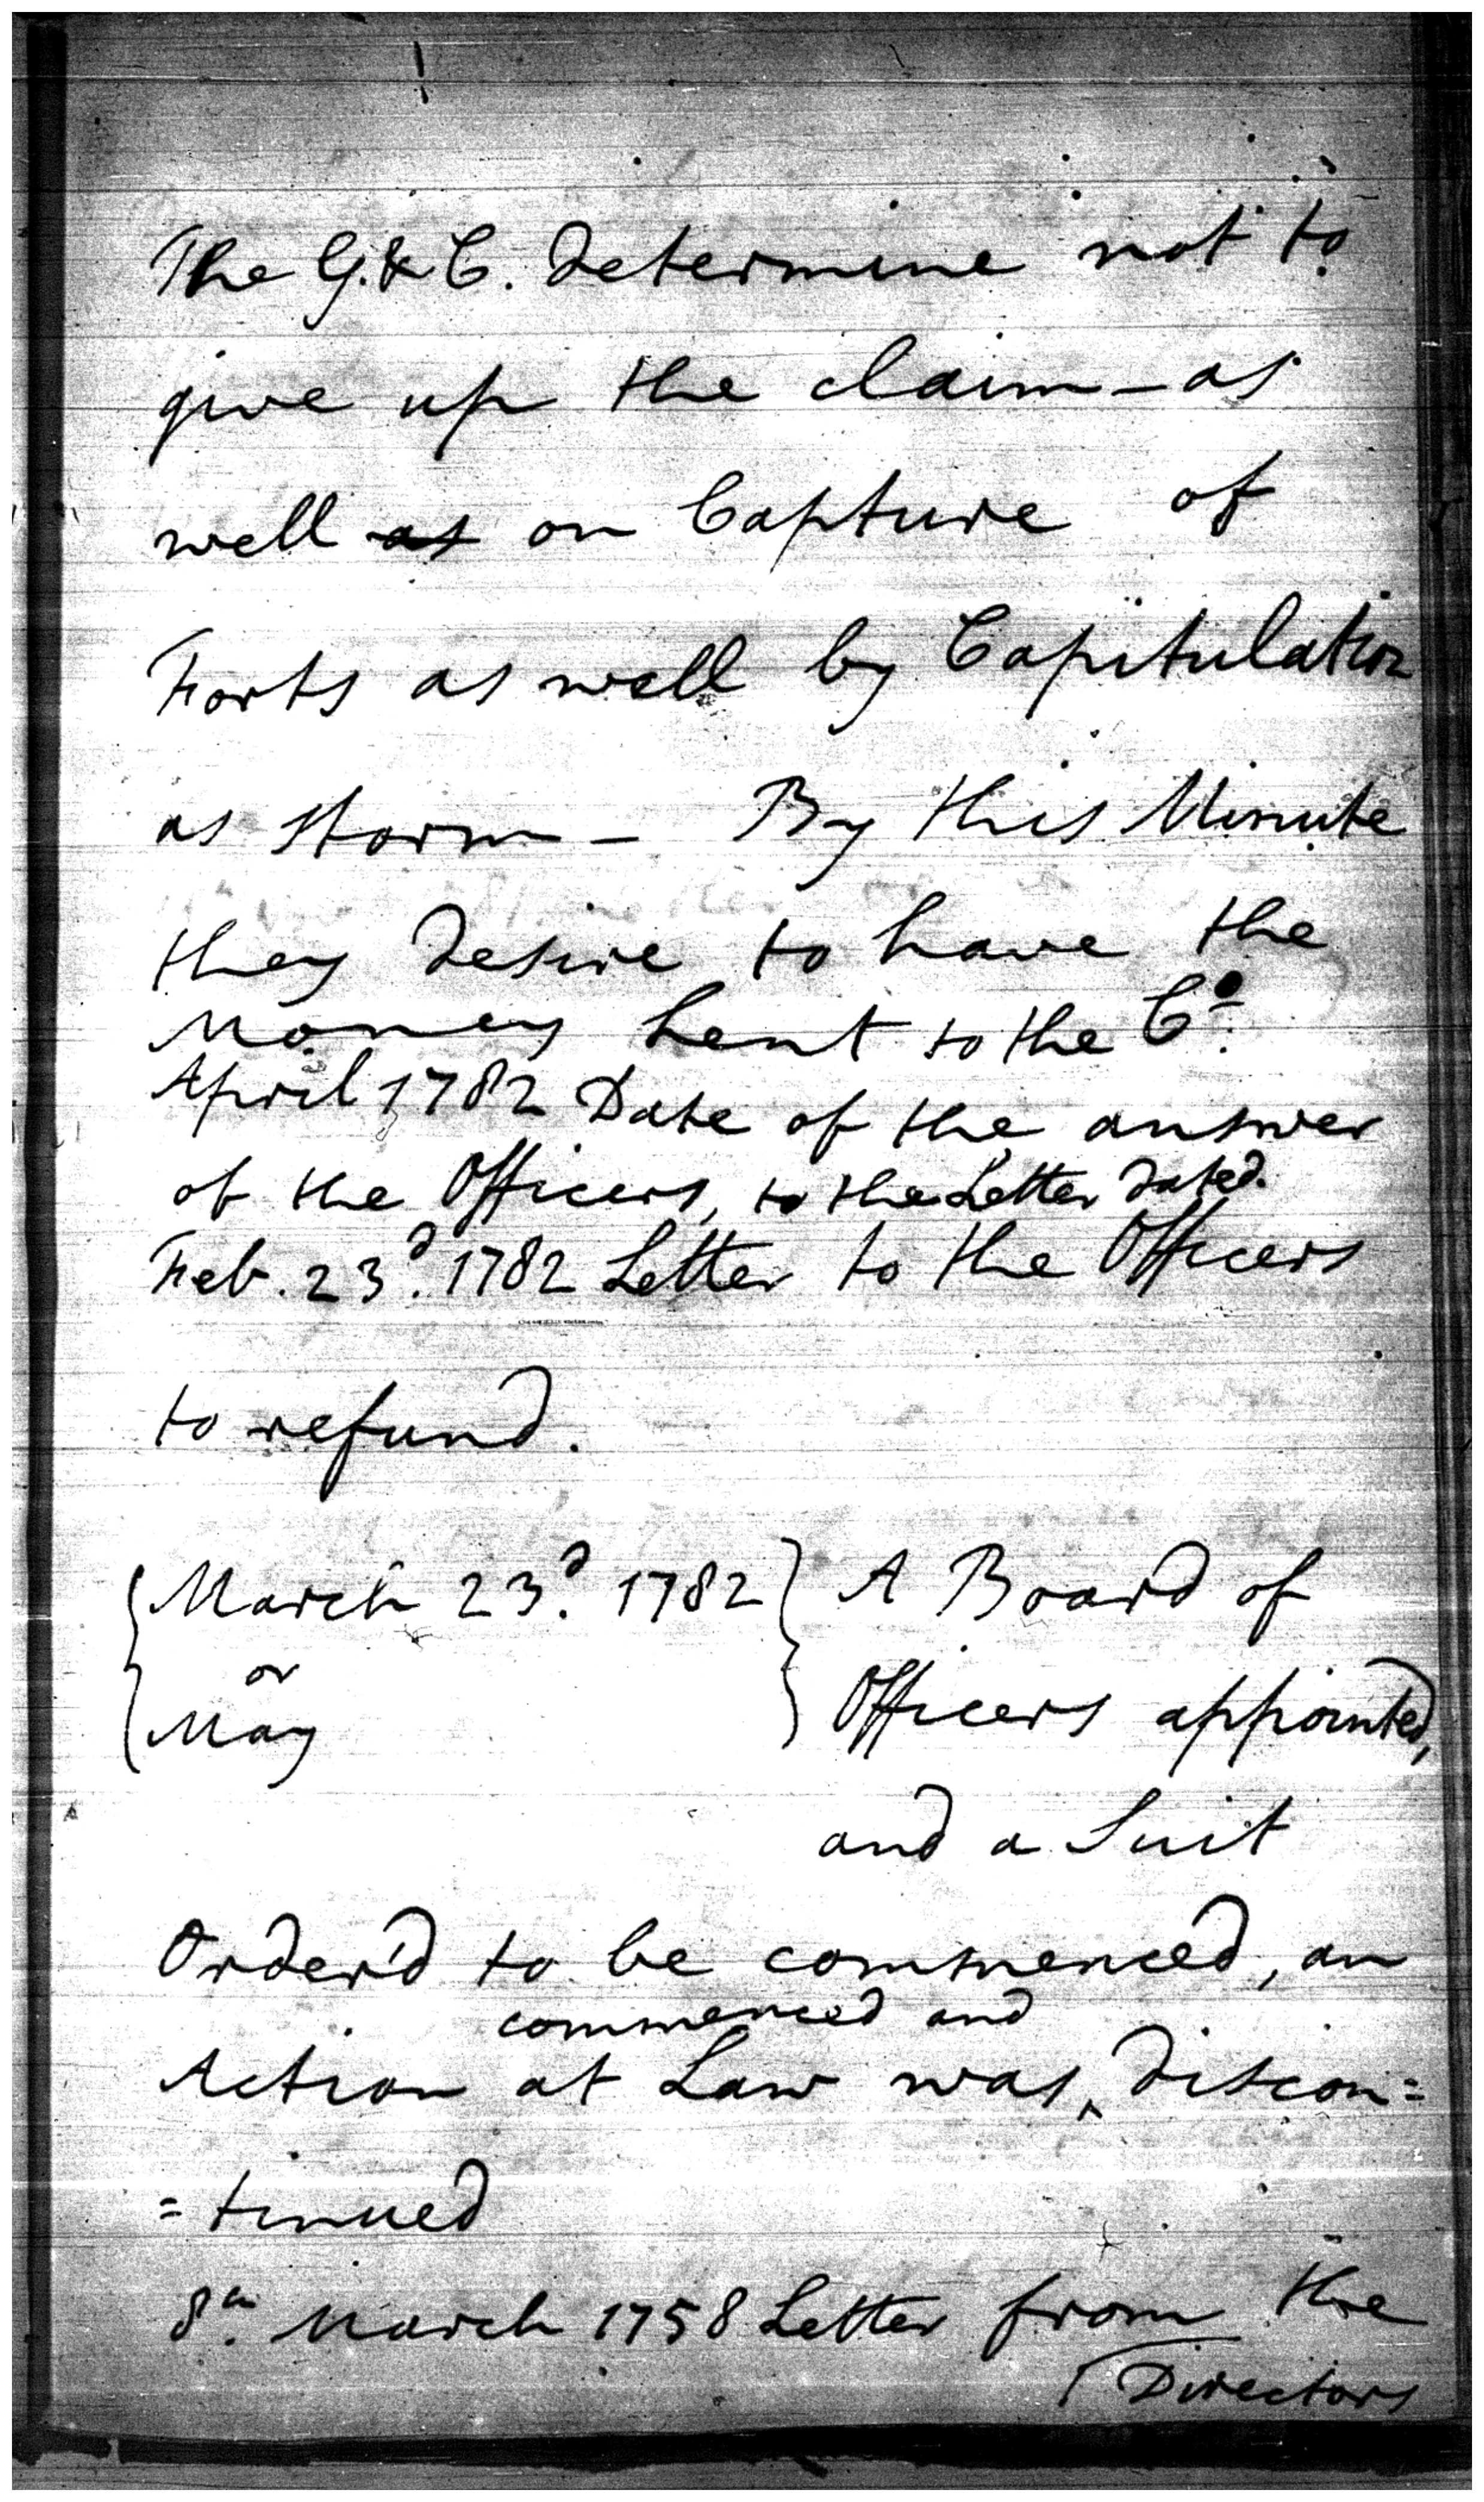 The G. & C. determine not to
give up the claim – as
well as on Capture of
Forts as well by Capitulation
as storm – By this Minute
they desire to have the
Money lent to the Co.
April 1782 Date of the answer
of the Officers, to the Letter dated.
Feb. 23d. 1782 Letter to the Officers
to refund.
March 23d. 1782 } A Board of
or
May } Officers appointed,
and a Suit
Order'd to be commenced, an
commenced and
Action at Law was ‸ discon=
=tinued
8th. March 1758 Letter from the
Directors